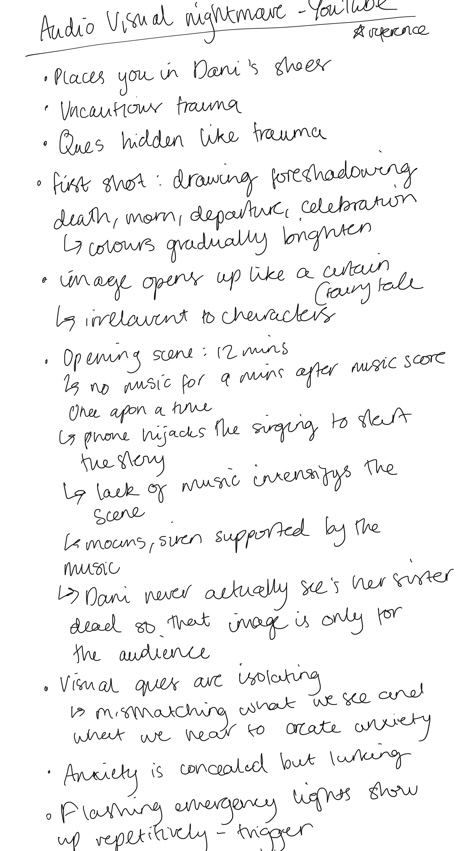 Audio Visual nightmare - YouTube
☆ reference
• Places you in Dani's shoes
• Uncautious trauma
• Ques hidden like trauma
• first shot: drawing foreshadowing
death, morn, departure, celebration
↳ colours gradually brighten
• image opens up like a curtain
(fairytale
↳ irrelavent to characters
• Opening scene: 12 mins
↳ no music for 9 mins after music score
Once apon a time
↳ phone hijacks the singing to start
the story
↳ lack of music intensifys the
scene
↳ moans, siren supported by the
music
↳ Dani never actually see's her sister
dead so that image is only for
the audience
• Visual ques are isolating
↳ mismatching what we see and
what we hear to create anxiety
• Anxiety is concealed but lurking
• Flashing emergency lights show
up repetitively - trigger